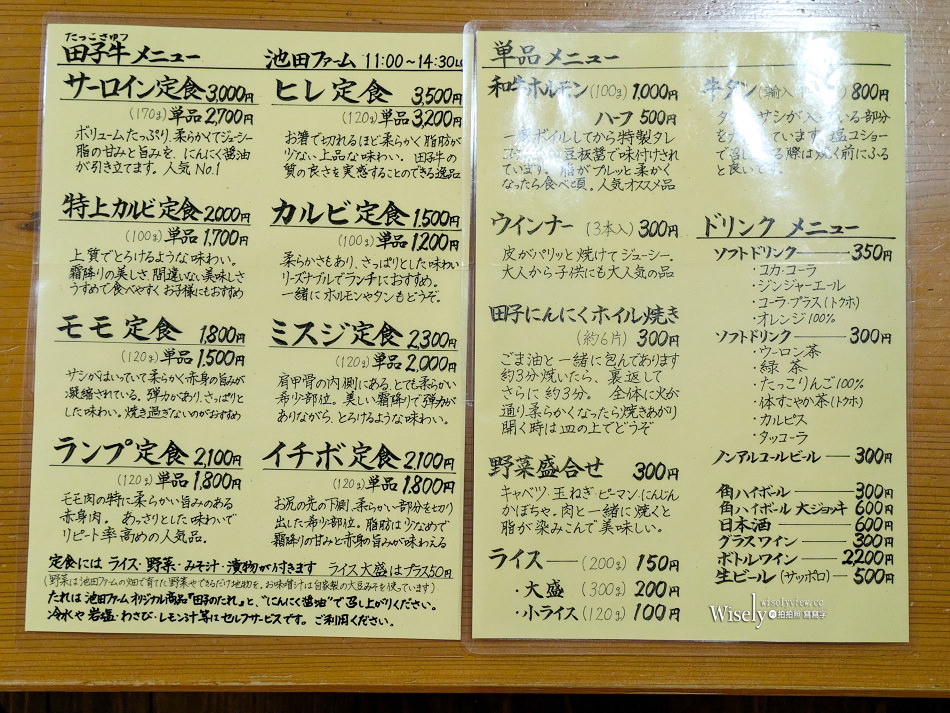 たっこぎゅう
田子牛メニュー
池田ファーム 11:00～14:30LO
サーロイン定食 3,000円
(170g) 単品 2,700円
ボリュームたっぷり、柔らかくてジューシー
脂の甘みと旨みを、にんにく醤油
が引き立てます。人気No.1
ヒレ定食 3,500円
(120g) 単品 3,200円
お箸で切れるほど柔らかく脂肪が
少ない上品な味わい。田子牛の
質の良さを実感することのできる逸品
特上カルビ定食 2,000円
(100g) 単品 1,700円
上質でとろけるような味わい。
霜降りの美しさ、間違いない美味しさ
うすめで食べやすくお子様にもおすすめ
カルビ定食 1,500円
(100g) 単品 1,200円
柔らかさもあり、さっぱりとした味わい
リーズナブルでランチにおすすめ。
一緒にホルモンやタンもどうぞ。
モモ定食 1,800円
(120g) 単品 1,500円
サシがはいっていて柔らかく赤身の旨みが
凝縮されている。弾力があり、さっぱりと
した味わい。焼き過ぎないのがおすすめ
ミスジ定食 2,300円
(120g) 単品 2,000円
肩甲骨の内側にある、とても柔らかい
希少部位。美しい霜降りで弾力が
ありながら、とろけるような味わい。
ランプ定食 2,100円
(120g) 単品 1,800円
モモ肉の特に柔らかい旨みのある
赤身肉。あっさりとした味わいで
リピート率高めの人気品。
イチボ定食 2,100円
(120g) 単品 1,800円
お尻の先の下側、柔らかい部分を切り
出した希少部位。脂肪は少なめで
霜降りの甘みと赤身の旨みが味わえる
定食にはライス・野菜・みそ汁・漬物が付きます ライス大盛はプラス50円
(野菜は池田ファームの畑で育てた野菜やできるだけ地物を。お味噌汁は自家製の大豆みそを使っています)
たれは池田ファームオリジナル商品『田子のたれ』と、"にんにく醤油"で召し上がりください。
冷水や岩塩・わさび・レモン汁等はセルフサービスです。ご利用ください。
単品メニュー
和牛ホルモン (100g) 1,000円
ハーフ 500円
ボイルしてから特製タレ
豆板醤で味付けされ
ています。脂がプルッと柔かく
なったら食べ頃。人気オススメ品
牛タン 800円
サシが入っている部分
塩コショー
際は焼く前にふる
と良いです。
ウインナー (3本入) 300円
皮がパリッと焼けてジューシー。
大人から子供にも大人気の品
田子にんにくホイル焼き
(約6片) 300円
ごま油と一緒に包んであります
約3分焼いたら、裏返して
さらに約3分。全体に火が
通り柔らかくなったら焼きあがり
開く時は皿の上でどうぞ
野菜盛合せ 300円
キャベツ・玉ねぎ・ピーマン・にんじん
かぼちゃ。肉と一緒に焼くと
脂が染みこんで美味しい。
ライス (200g) 150円
・大盛 (300g) 200円
・小ライス (120g) 100円
ドリンクメニュー
ソフトドリンク 350円
・コカ・コーラ
・ジンジャーエール
・コーラ・プラス(トクホ)
・オレンジ100%
ソフトドリンク 300円
・ウーロン茶
・緑茶
・たっこりんご100%
・体すこやか茶(トクホ)
・カルピス
・タッコーラ
ノンアルコールビール 300円
角ハイボール 300円
角ハイボール 大ジョッキ 600円
日本酒 600円
グラスワイン 300円
ボトルワイン 2,200円
生ビール (サッポロ) 500円
wiselyview.cc
Wisely 拍拍照 寫寫字